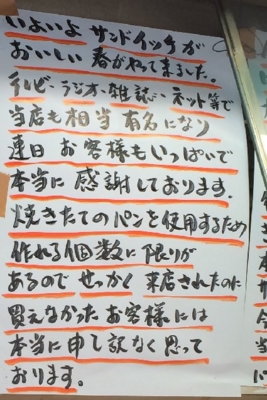 いよいよ サンドイッチが
おいしい 春がやって来ました。
テレビ・ラジオ・雑誌・ネット等で
当店も相当有名になり
連日 お客様もいっぱいで
本当に 感謝しております。
焼きたてのパンを使用するため
作れる個数に限りが
あるので せっかく 来店されたのに
買えなかったお客様には
本当に申し訳なく思って
おります。